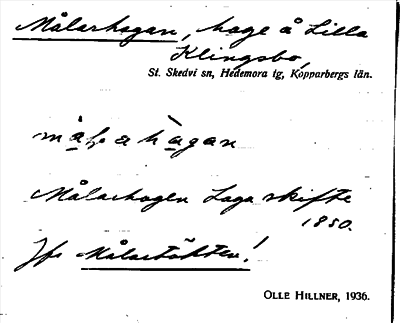 Målarhagan, hage å Lilla
Klingsbo,
St. Skedvi sn, Hedemora tg, Kopparbergs län.
Målarhagen Laga skifte
1850.
Jfr Målartäkten!
OLLE HILLNER, 1936.